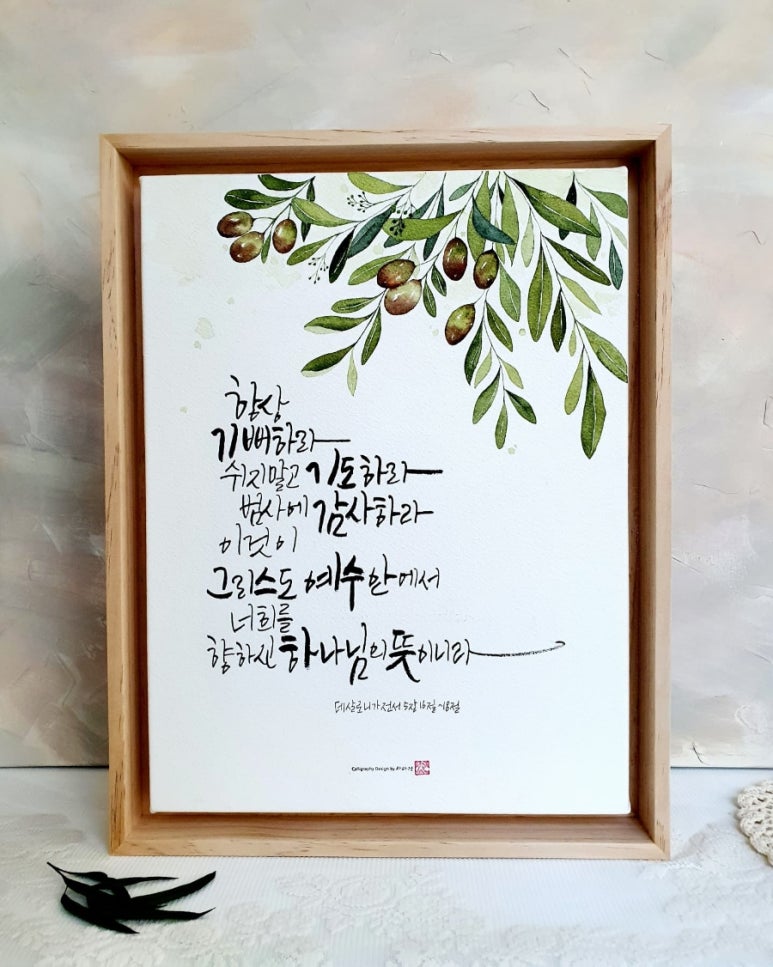 항상
기뻐하라
쉬지말고 기도하라
범사에 감사하라
이것이
그리스도 예수 안에서
너희를
향하신 하나님의 뜻이니라
데살로니가전서 5장 16절~18절
Calligraphy Design By